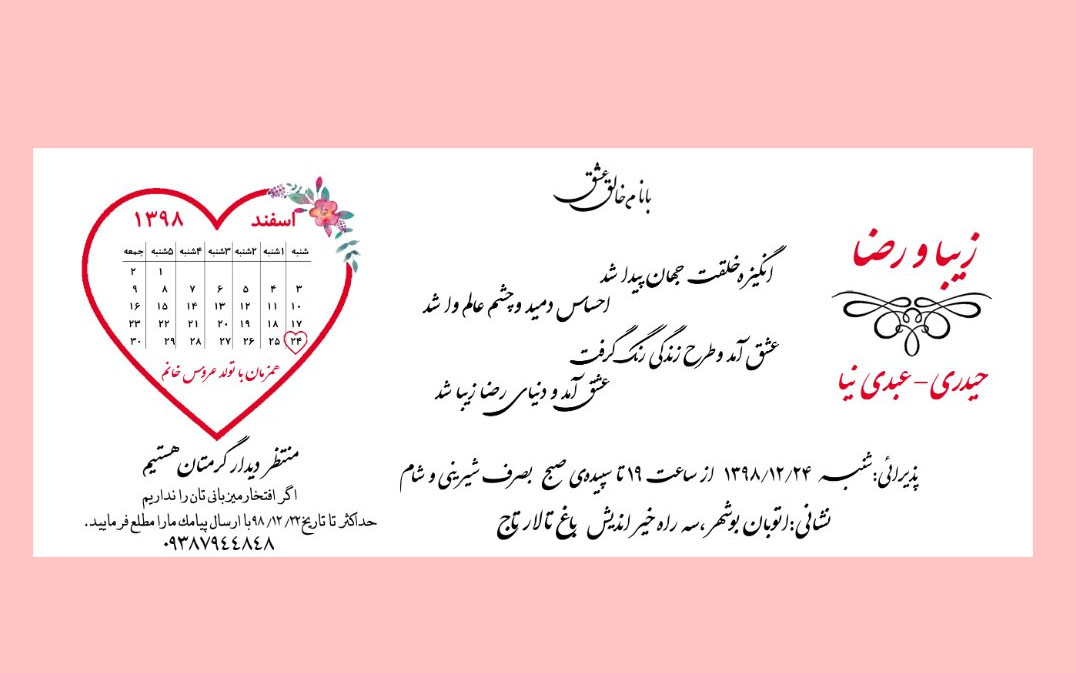 بانام خالق عشق
زیبا و رضا
حیدری - عبدی نیا
انگیزه خلقت جهان پیدا شد
احساس دمید و چشم عالم وا شد
عشق آمد و طرح زندگی رنگ گرفت
عشق آمد و دنیای رضا زیبا شد
پذیرائی: شنبه ۱۳۹۸/۱۲/۲۴ از ساعت ۱۹ تا سپیده‌ی صبح بصرف شیرینی و شام
نشانی: اتوبان بوشهر، سه راه خیر اندیش باغ تالار تاج
اسفند ۱۳۹۸
شنبه ۱شنبه ۲شنبه ۳شنبه ۴شنبه ۵شنبه جمعه
۱ ۲
۳ ۴ ۵ ۶ ۷ ۸ ۹
۱۰ ۱۱ ۱۲ ۱۳ ۱۴ ۱۵ ۱۶
۱۷ ۱۸ ۱۹ ۲۰ ۲۱ ۲۲ ۲۳
۲۴ ۲۵ ۲۶ ۲۷ ۲۸ ۲۹ ۳۰
همزمان با تولد عروس خانم
منتظر دیدار گرمتان هستیم
اگر افتخار میزبانی تان را نداریم
حداکثر تا تاریخ ۹۸/۱۲/۲۲ با ارسال پیامك ما را مطلع فرمایید.
۰۹۳۸۷۹۴۴۸۴۸